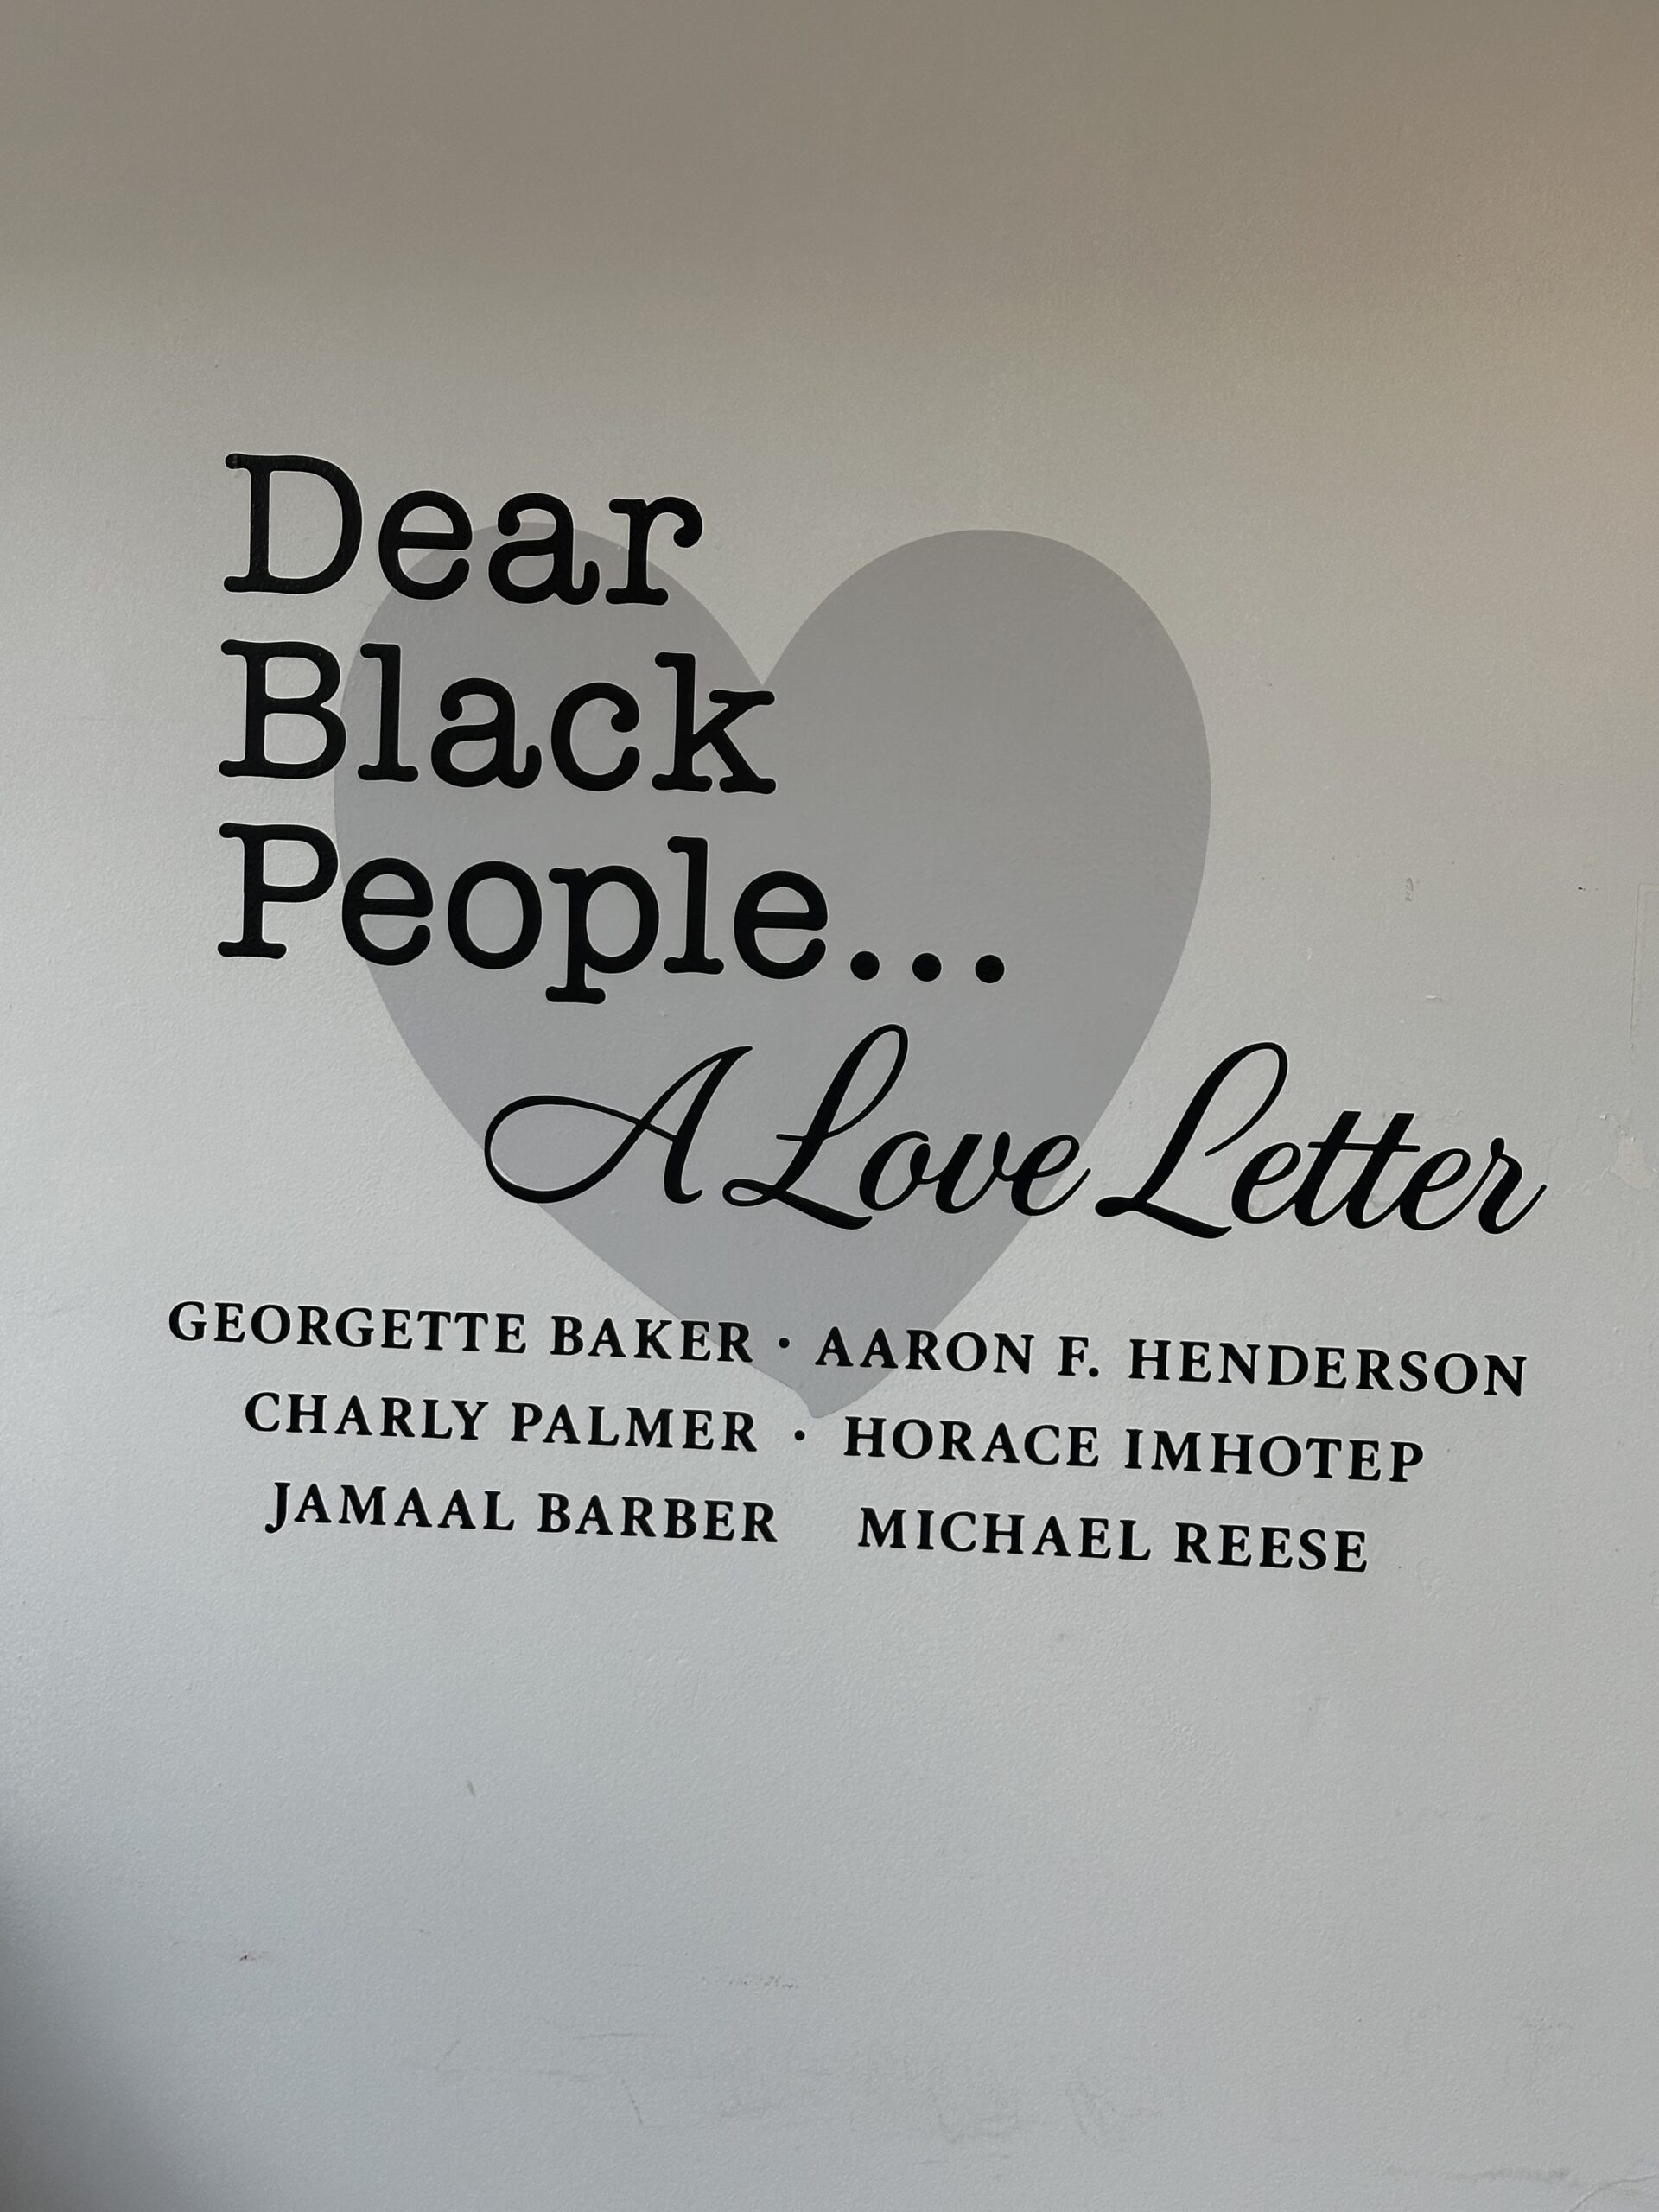 Dear
Black
People...
A Love Letter
GEORGETTE BAKER · AARON F. HENDERSON
CHARLY PALMER · HORACE IMHOTEP
JAMAAL BARBER MICHAEL REESE